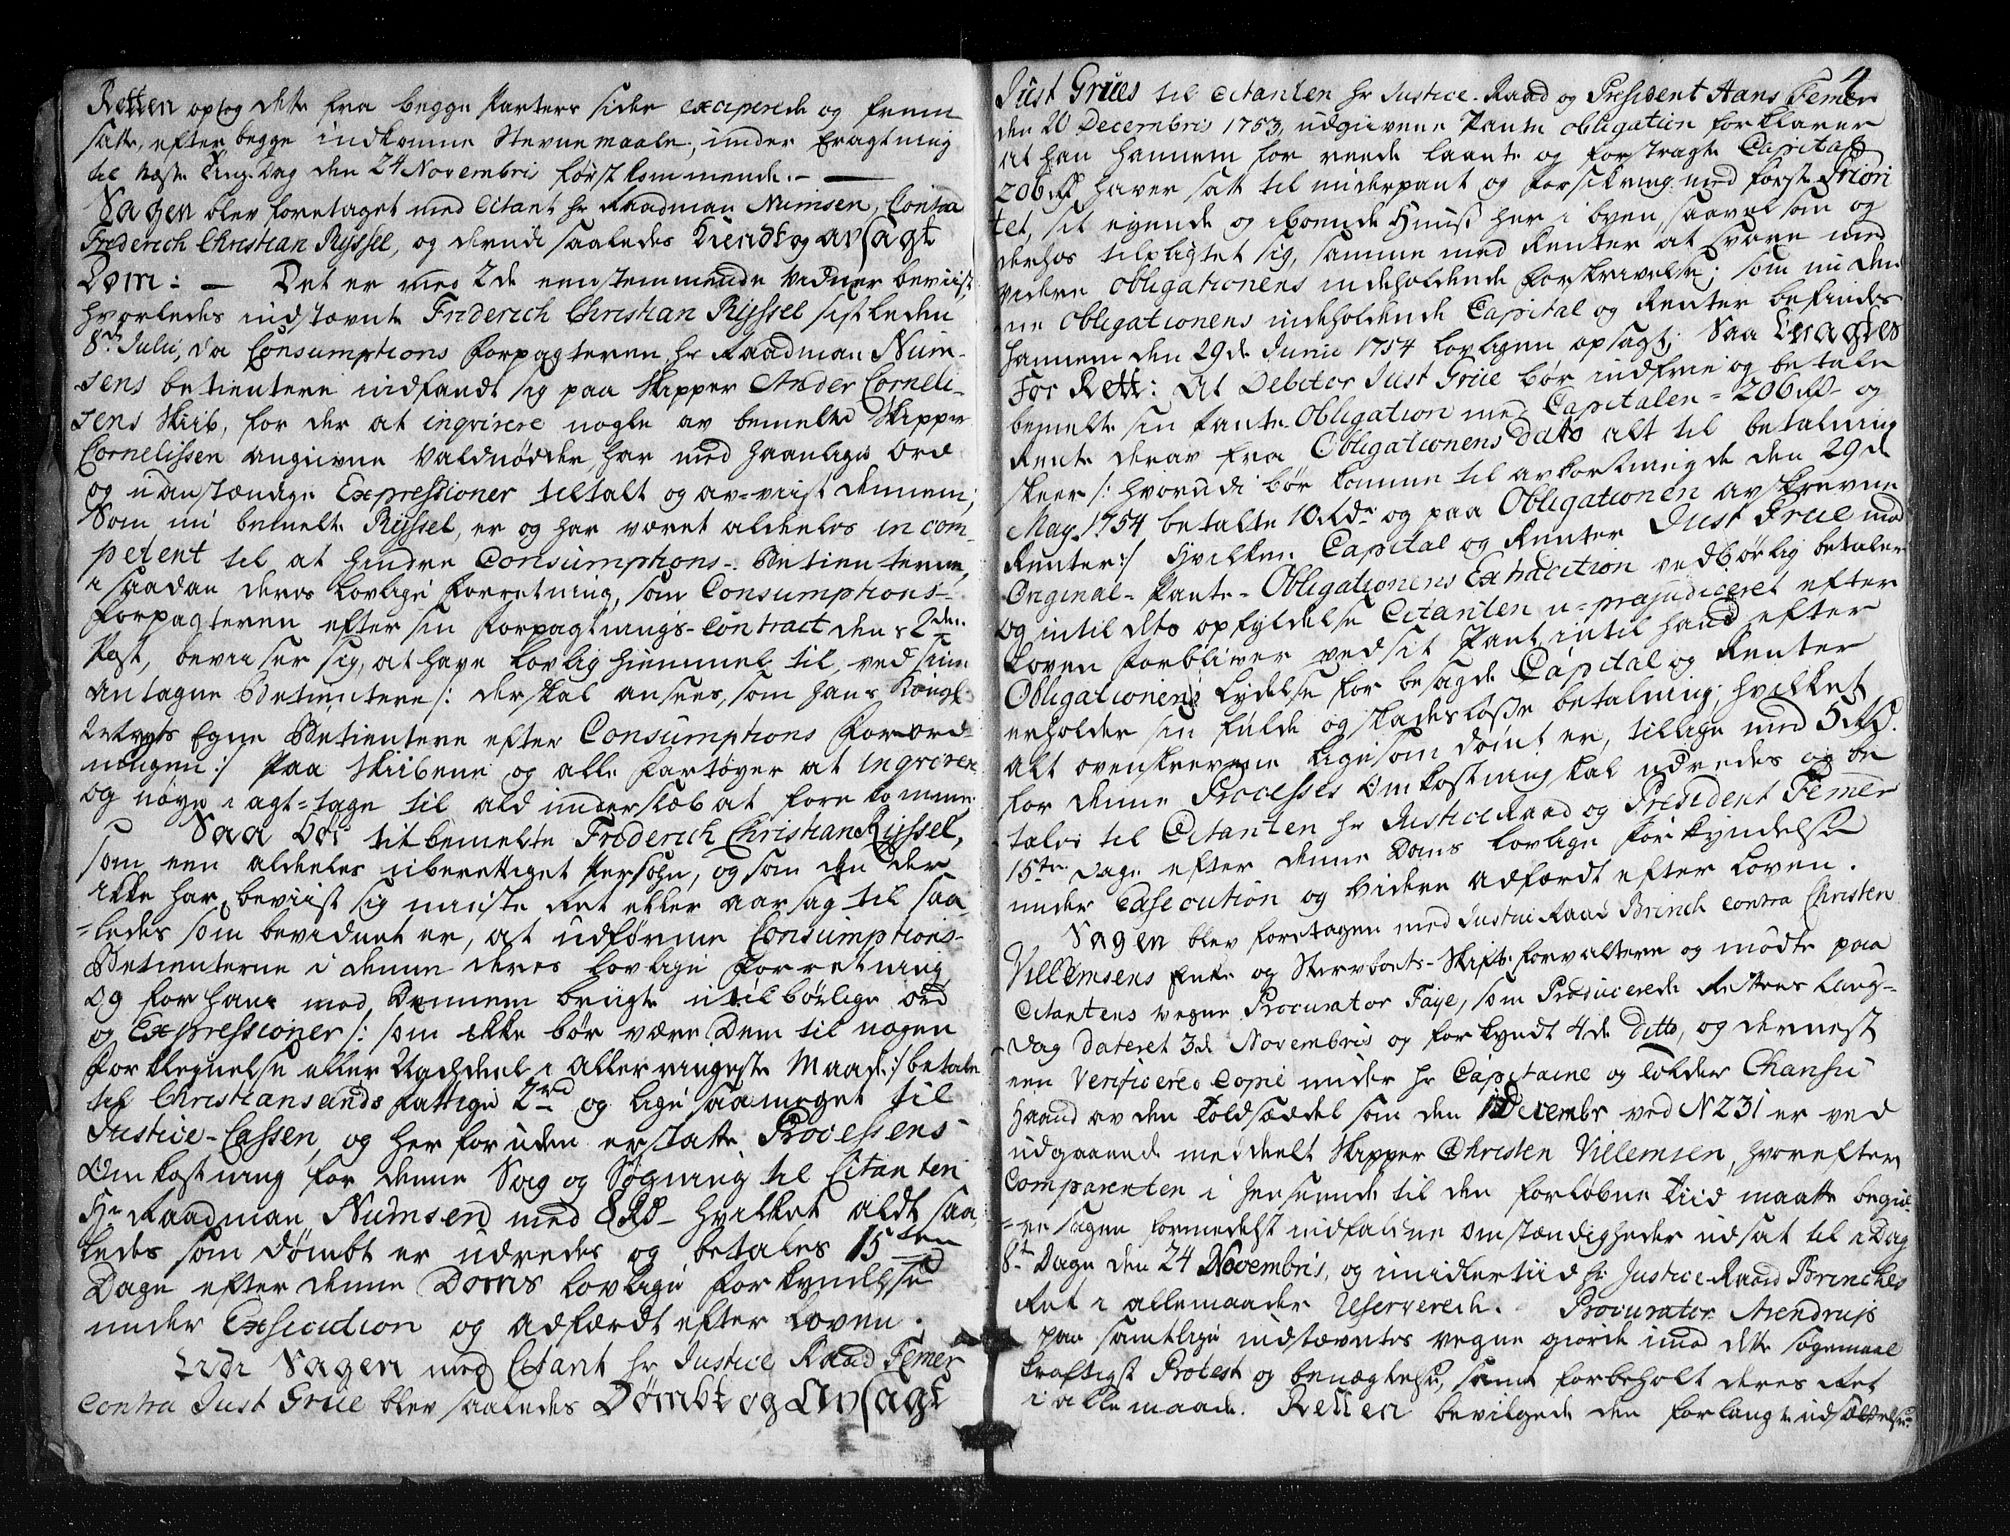 Retten optog dette fra begge Parters sider exciperede og frem
satte, efter begge indkomne Stevnemaale, under Eragtning
til næste Ting-Dag den 24 Novembri førstkommende. —
Sagen blev foretaget med Citant hr Raadman Numsen, Contra
Friderich Christian Ryssel, og derudi saaledes Kiendt og avsagt
Dom: — Det er med 2de eenstemmende Vidner beviist,
hvorledes indstævnte Friderich Christian Ryssel sistleden
8de Julii, da Consumptions Forpagteren hr Raadman Num-
sens betientere indfandt sig paa Skipper Ander Corneli-
sens Skiib, for der at inqvirere nogle av bemelte Skipper
Cornelissen angivne Valdnødder, har med haanlige Ord
og uanstændige Expressioner tiltalt og av-viist dennem;
Som nu bemelte Ryssel, er og har været aldeles incom-
petent til at hindre Consumptions-Betienterne,
i saadan deres lovlige Forretning, som Consumptions-
Forpagteren efter sin Forpagtnings-Contract dens 2den
Post, beviiser sig, at have lovlig hiemmel til, ved sine
antagne Betientere /: der skal ansees, som hans Kongl:
Mayts Egne Betientere efter Consumptions Forord-
ningen :/ Paa Skiibene og alle Fartøyer at inqvirere
og nøye i agt-tage til ald underslæb at forekomme
Saa bør titbemelte Friderich Christian Ryssel,
som een aldeles uberettiget Persohn, og som den der
ikke har beviist sig mindste Ret eller aarsag til saa-
ledes som bevidnet er, at udførme Consumptions-
Betienterne i denne deres lovlige Forretning
og for hans mod Dennem brugte utilbørlige ord
og Expressioner /: som ikke bør være Dem til nogen
Forklegnelse eller Nachdeel i allerringeste Maade :/ betale
til Christiansands Fattige 2rd og lige saa meget til
Justice-Cassen, og her foruden erstatte Processens
Omkostning for denne Sag og Søgning til Citanten
Hr Raadman Numsen med 8 Rd- hvilket aldt saa-
ledes som dømbt er udredes og betales 15ten
Dage efter denne Doms lovlige forkyndelse
under Execution og adfærdt efter Loven.
Udi Sagen med Citant hr Justice Raad Femer
Contra Just Grue blev saaledes Dømbt og Avsagt
4
Just Grues til Citanten hr Justice-Raad og President Hans Femer
den 20 Decembris 1753, udgivene Pante obligation forklarer
at han hannem for reede laante og forstragte Capital
206 Rd haver satt til underpant og forsikring med første Priori
tet, sit egende og iboende Huus her i byen, saavel som og
derhos tilpligtet sig, samme med Renter at svare med
videre obligationens indeholdende forskrivelse; som nu den
ne Obligationens indeholdende Capital og Renter befindes
hannem den 29de Junii 1754 lovligen opsagt; Saa Eragtes
For Rett: At Debitor Just Grue bør indfrie og betale
bemelte sin Pante-Obligation med Capitalen - 206 Rd - og
Rente derav fra Obligationens Dato alt til betalning
skeer /: hvorudi bør komme til avkortning de den 29de
May 1754 betalte 10 Rdr og paa Obligationen avskrevne
Renter :/ Hvilken Capital og Renter Just Grue mod
Original-Pante-Obligationens Extradition vedbørlig betaler
og intil dets opfyldelse Citanten u-præjudiceret efter
Loven forbliver ved sit Pant, intil hand efter
Obligationens lydelse for besagde Capital og Renter
erholder sin fulde og skadesløsse betalning; hvilket
alt ovenskrevne ligesom dømt er, tillige med 5 Rd.
for denne Processes Omkostning skal udredes og be
tales til Citanten hr Justice Raad og President Femer
15ten Dage efter denne Doms lovlige forkyndelse
under Execution og videre adfærdt efter Loven.
Sagen blev foretagen med Justice Raad Brinch contra Christen
Villemsens Enke og Stervboets-Skifte forvaltere og mødte paa
Citantens vegne Procurator Faye, som Producerede Rettens Lang-
dag dateret 3de Novembris og forkyndt 4de Ditto, og dernest
een Verificered Copie under hr Capitaine og Tolder Chansu
Haand av den Toldsæddel som den Decembr ved N 231 er ved
udgaaende meddeelt Skipper Christen Villemsen, hvorefter
Comparenten i henseende til den forløbne Tiid maatte begie-
re sagen formedelst indfaldne Omstændigheder udsat til i Dag
8te Dage den 24 Novembris, og imidlertiid hr Justice-Raad Brinches
Ret i allemaader reserverede. Procurator Arendrups
paa samtlige indstævntes vegne giorde imod dette søgemaal
kraftigst Protest og benægtelse, samt forbeholt deres Ret
i alle maade. Retten bevilgede den forlangte udsættelse